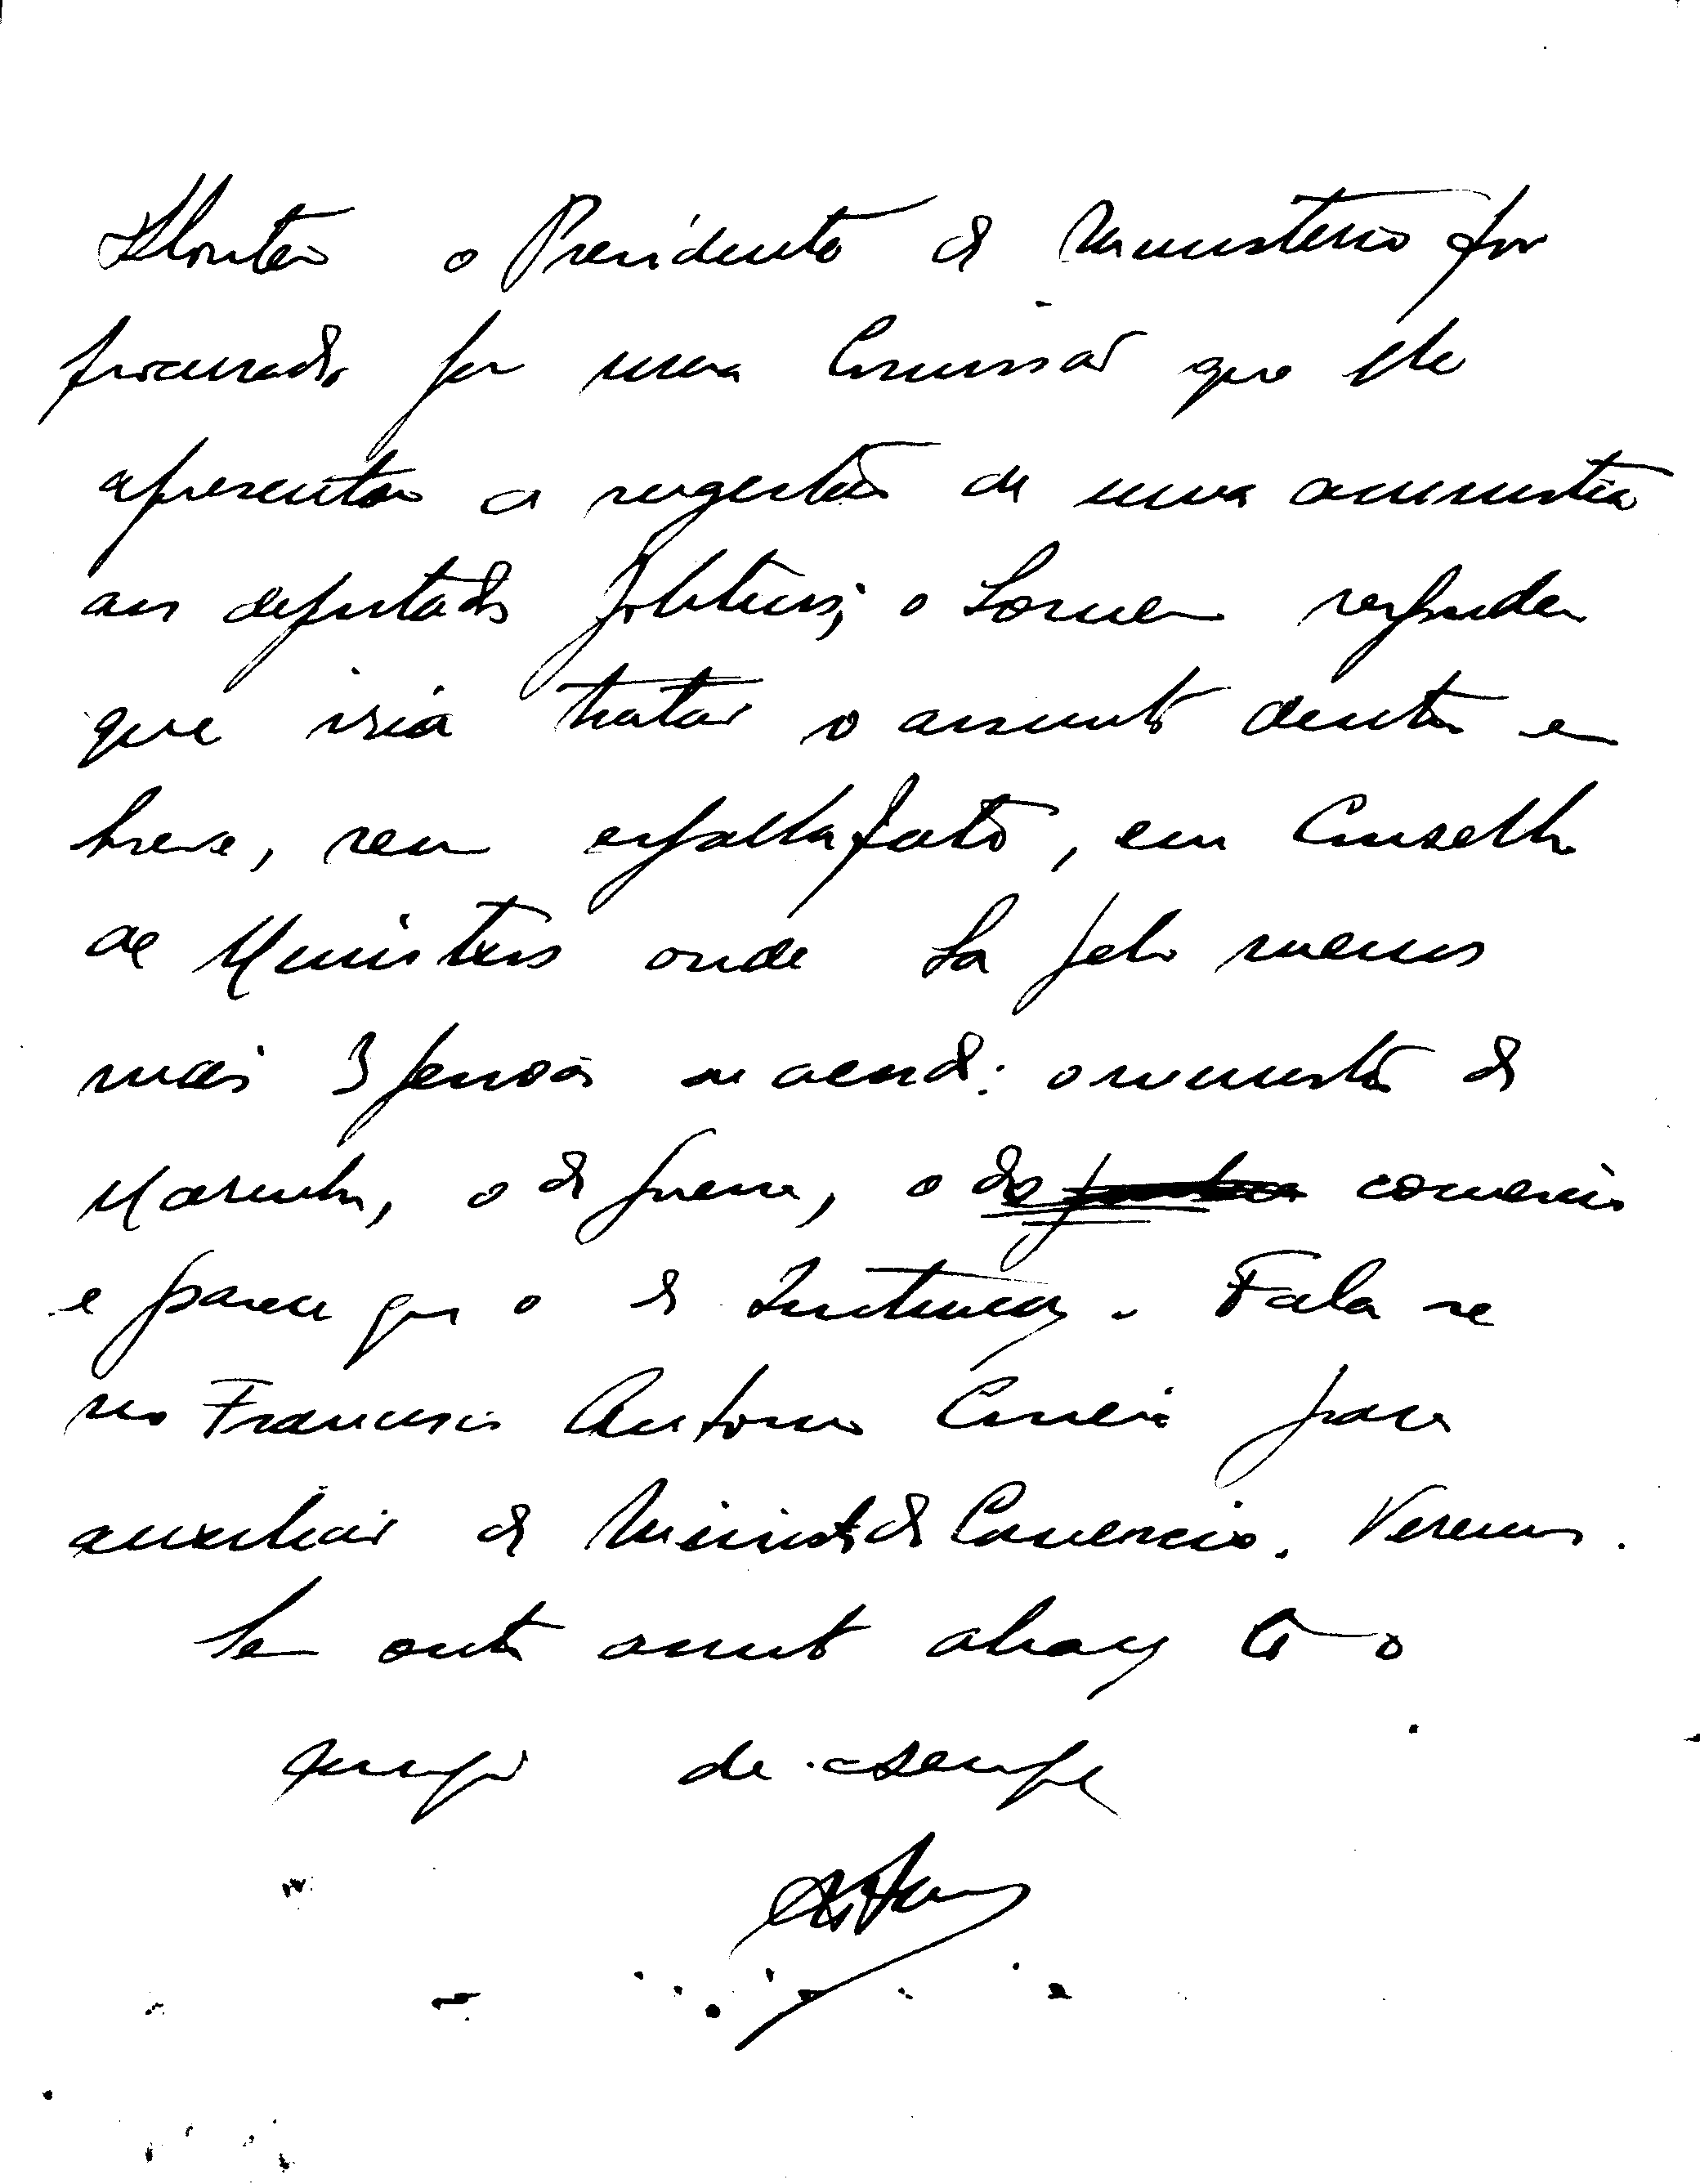 Hontem o Presidente do Ministerio foi
procurado por uma Comissão que lhe
apresentou a sugestão de uma amnistia
aos deputados politicos; o homem respondeu
que iria tratar o assunto dentro em
breve, sem espalhafato, em Conselho
de Ministros onde ha pelo menos
mais 3 pessoas de acordo: o ministro da
Marinha, o da guerra, o do comercio
e parece que o da Instrução. Fala-se
no Francisco Antonio Correia para
auxiliar do Ministro do Comercio. Veremos.
Sem outro assunto abraça-te o
amigo de sempre